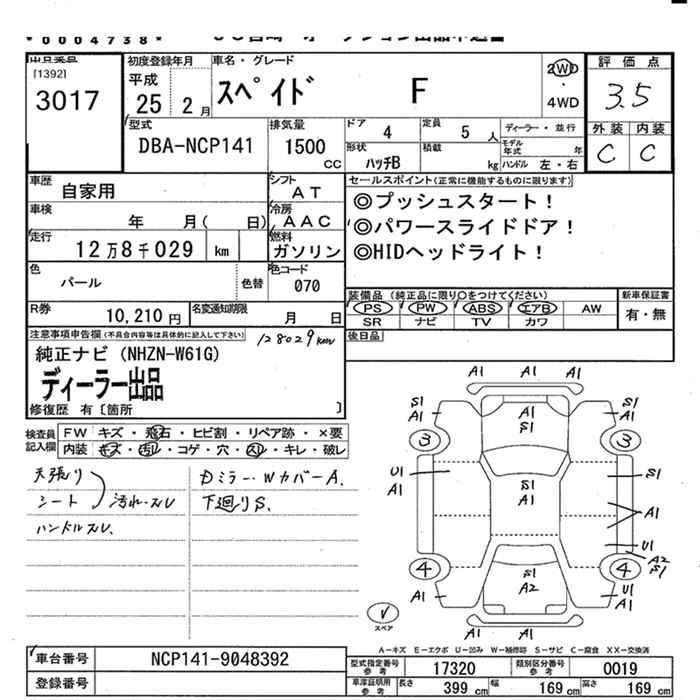 0004738
出品番号 [1392] 3017
初度登録年月 平成 25 2 月
車名・グレード スペイド F
2WD ・ 4WD
評価点 3.5
外装 内装
C C
型式 DBA-NCP141
排気量 1500 CC
ドア 4 定員 5 人
ディーラー・並行
モデル年式 年
形状 ハッチB 積載 kg
ハンドル 左・右
車歴 自家用
シフト AT
車検 年 月( 日)
冷房 AAC
走行 12万8千029 km
燃料 ガソリン
色 パール 色替
色コード 070
R券 10,210 円
名変通知期限 月 日
セールスポイント(正常に機能するものに限ります)
◎プッシュスタート!
◎パワースライドドア!
◎HIDヘッドライト!
装備品 (純正品に限り○をつけてください)
新車保証書
PS PW ABS エアB AW 有・無
SR ナビ TV カワ
後日品
注意事項申告欄(不具合内容等は具体的に記入して下さい)
128029km
純正ナビ (NHZN-W61G)
ディーラー出品
修復歴 有〔箇所 〕
検査員記入欄
FW キズ・飛石・ヒビ割・リペア跡・×要
内装 キズ・汚れ・コゲ・穴・スレ・キレ・破レ
天張り
シート 汚れ・スレ
ハンドルスレ.
Dミラー・WカバーA.
下廻りS.
A1 A1 A1
S1 A1 A1 S1 S1 A1
3 3
U1 A1 S1 A1 S1
A1
U1
A2
S1
4 S1 A2 4
A1 U1 A1
A1 A1 A1
スペア
A―キズ E―エクボ U―凹み W―補修跡 S―サビ C―腐食 XX―交換済
車台番号 NCP141-9048392
登録番号
型式指定番号 参考 17320 類別区分番号 参考 0019
車庫証明用 参考 長さ 399 cm 幅 169 cm 高さ 169 cm